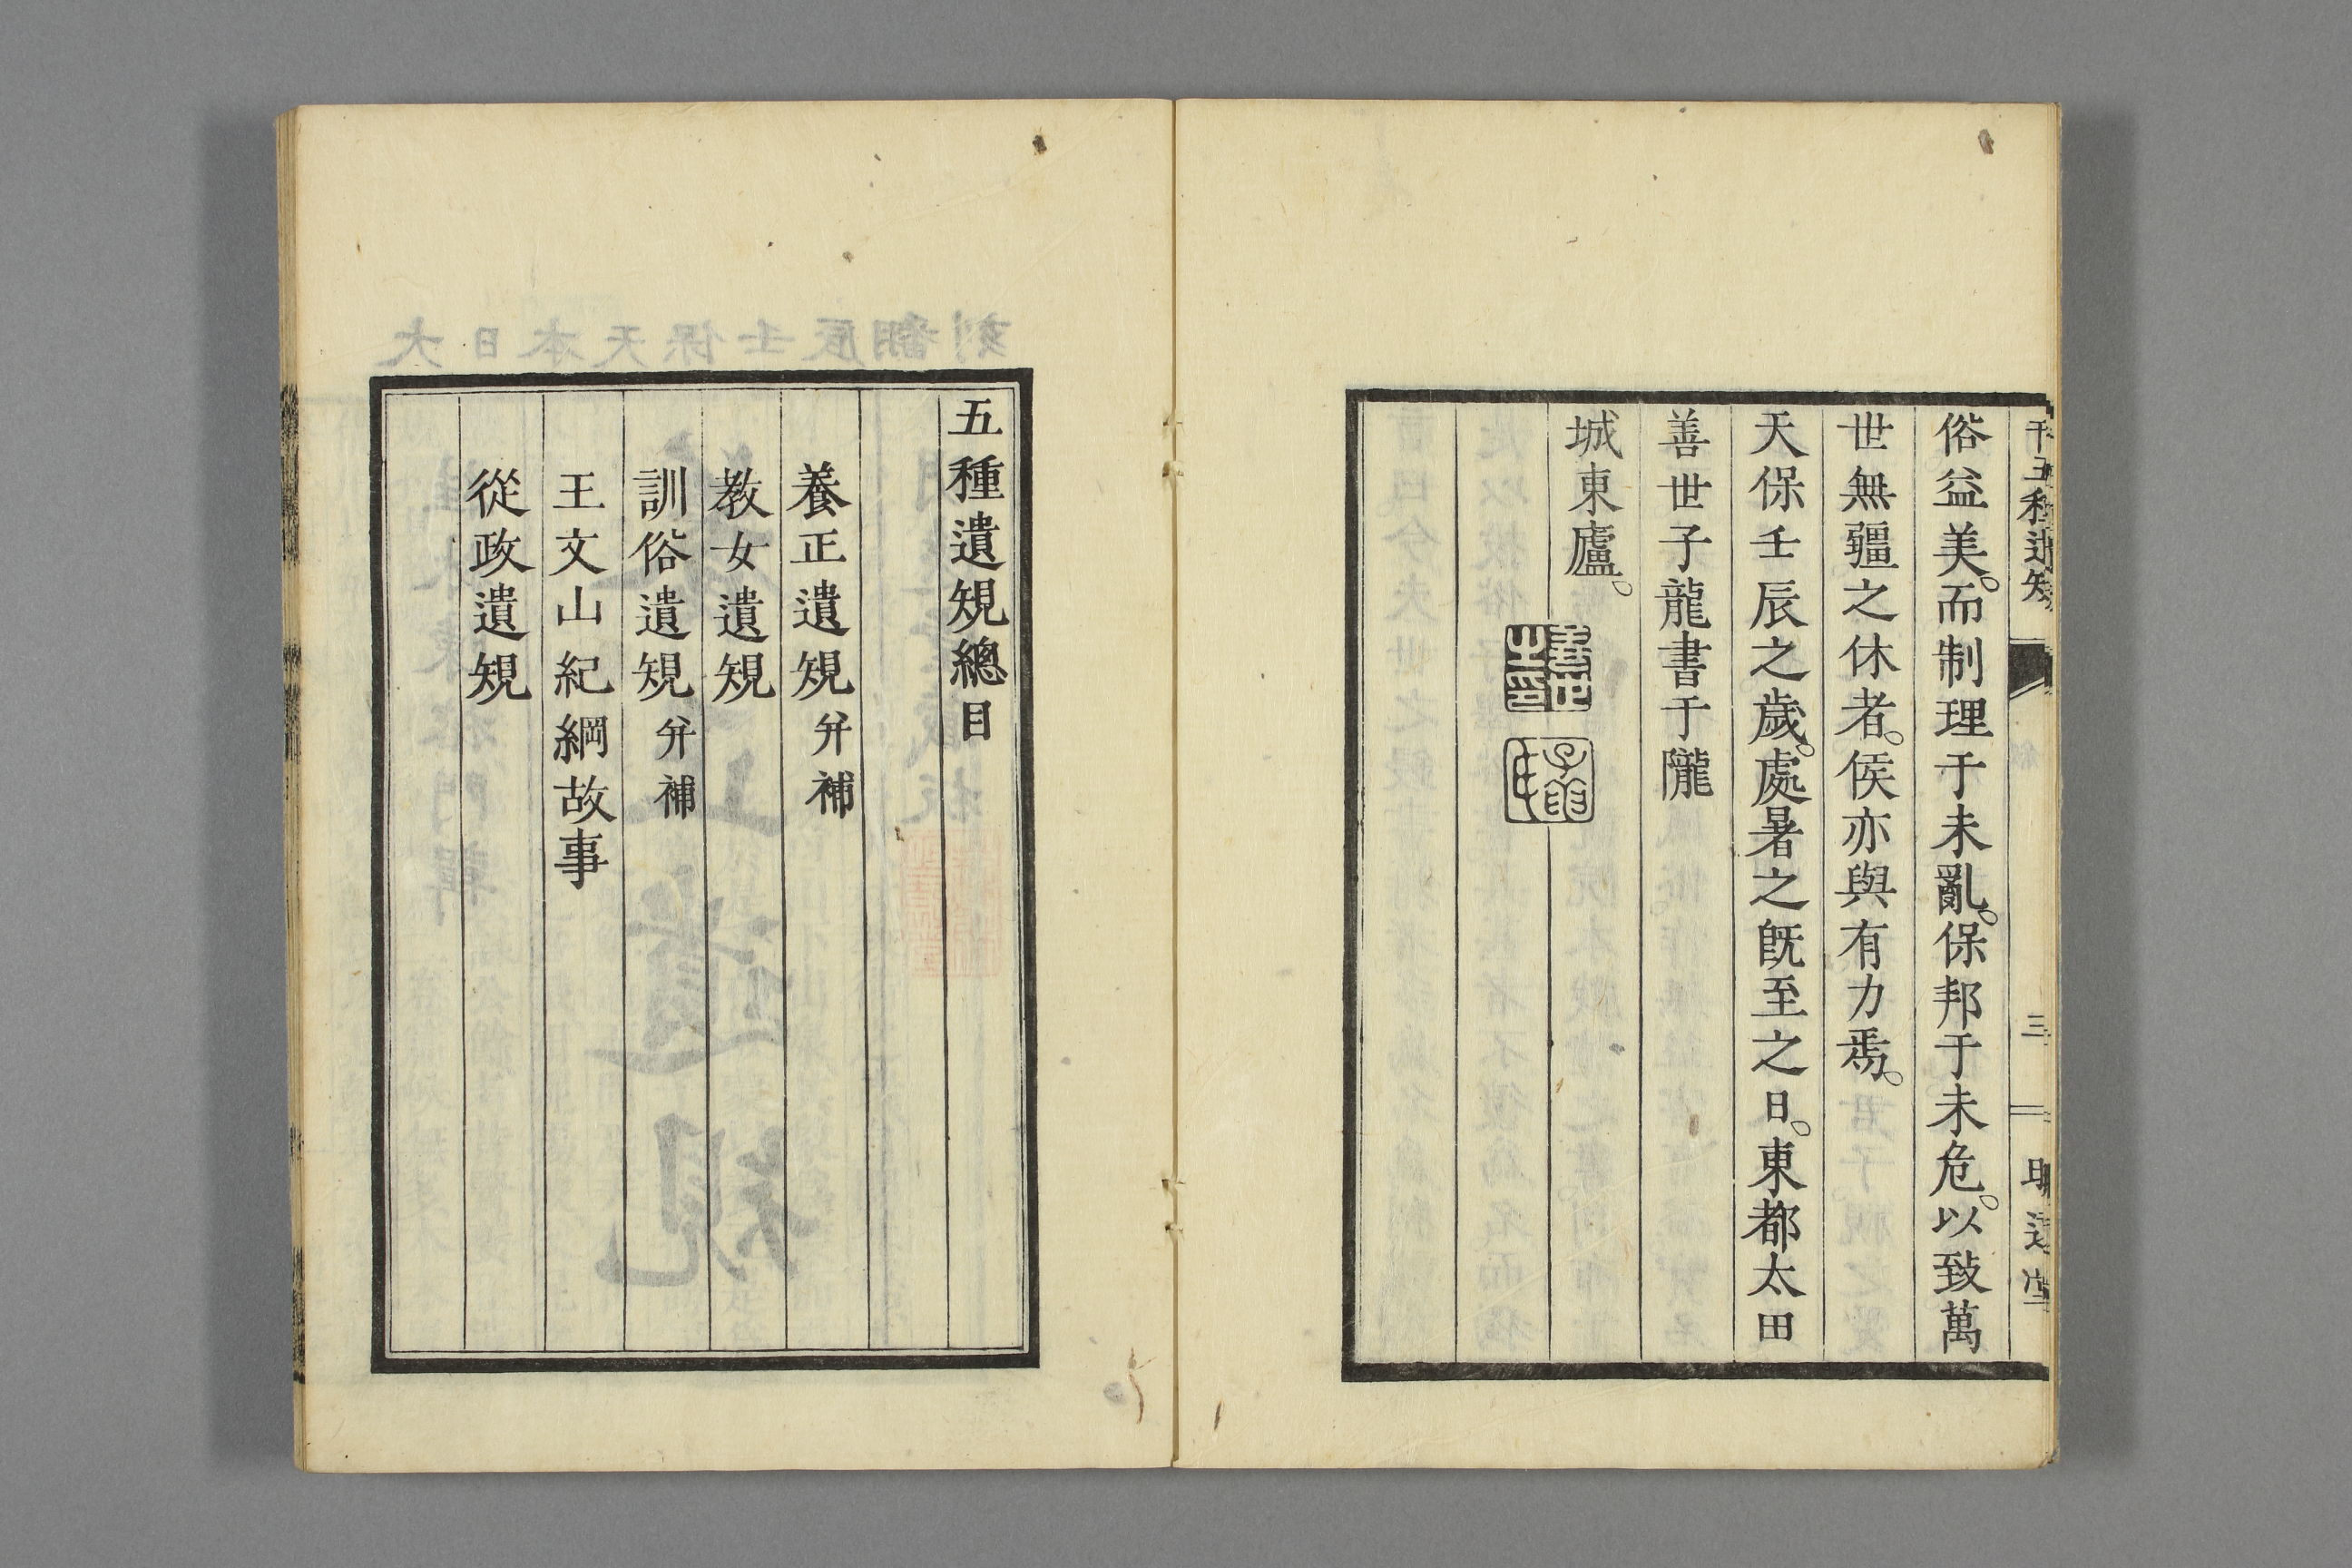 俗益美。而制理于未亂。保邦于未危。以致萬
世無疆之休者。矦亦與有力焉。
天保壬辰之歲。處暑之既至之日。東都太田
善世子龍書于隴
城東廬。
五種遺規總目
養正遺規 弁補
教女遺規
訓俗遺規 弁補
王文山紀綱故事
從政遺規